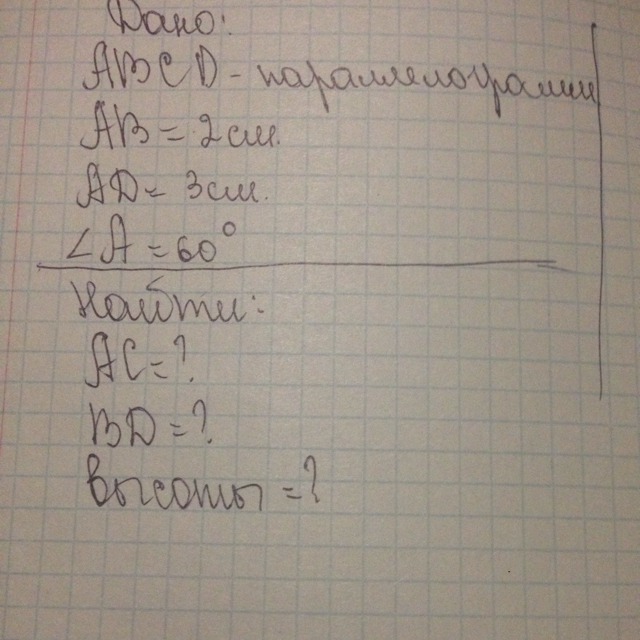 Дано:
ABCD - параллелограмм
AB = 2см.
AD = 3см.
∠A = 60°
Найти:
AC = ?
BD = ?
высоты = ?